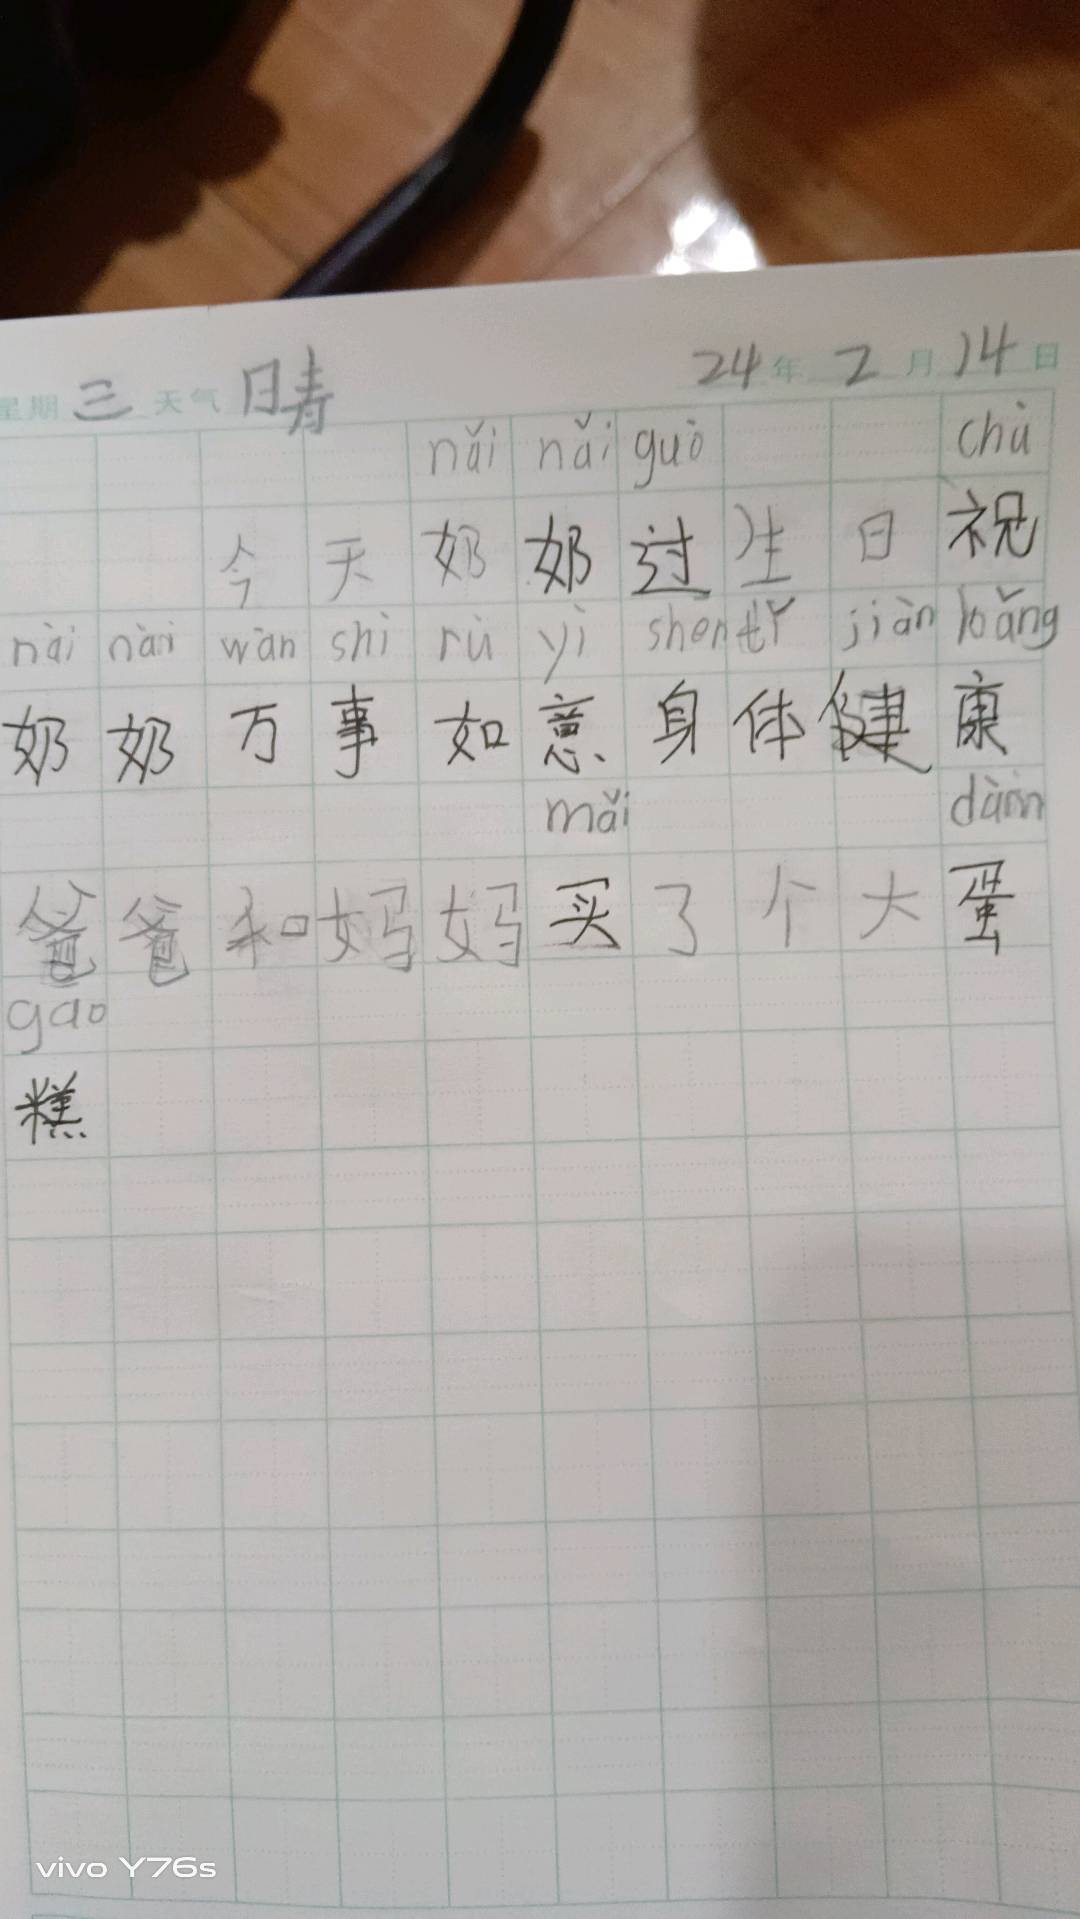 星期 三 天气 晴 24年 2月 14日
nǎi nǎi guò chù
今天奶奶过生日祝
nài nài wàn shì rù yì shēn tǐ jiàn kāng
奶奶万事如意身体健康
mǎi dàn
爸爸和妈妈买了个大蛋
gao
糕
vivo Y76s